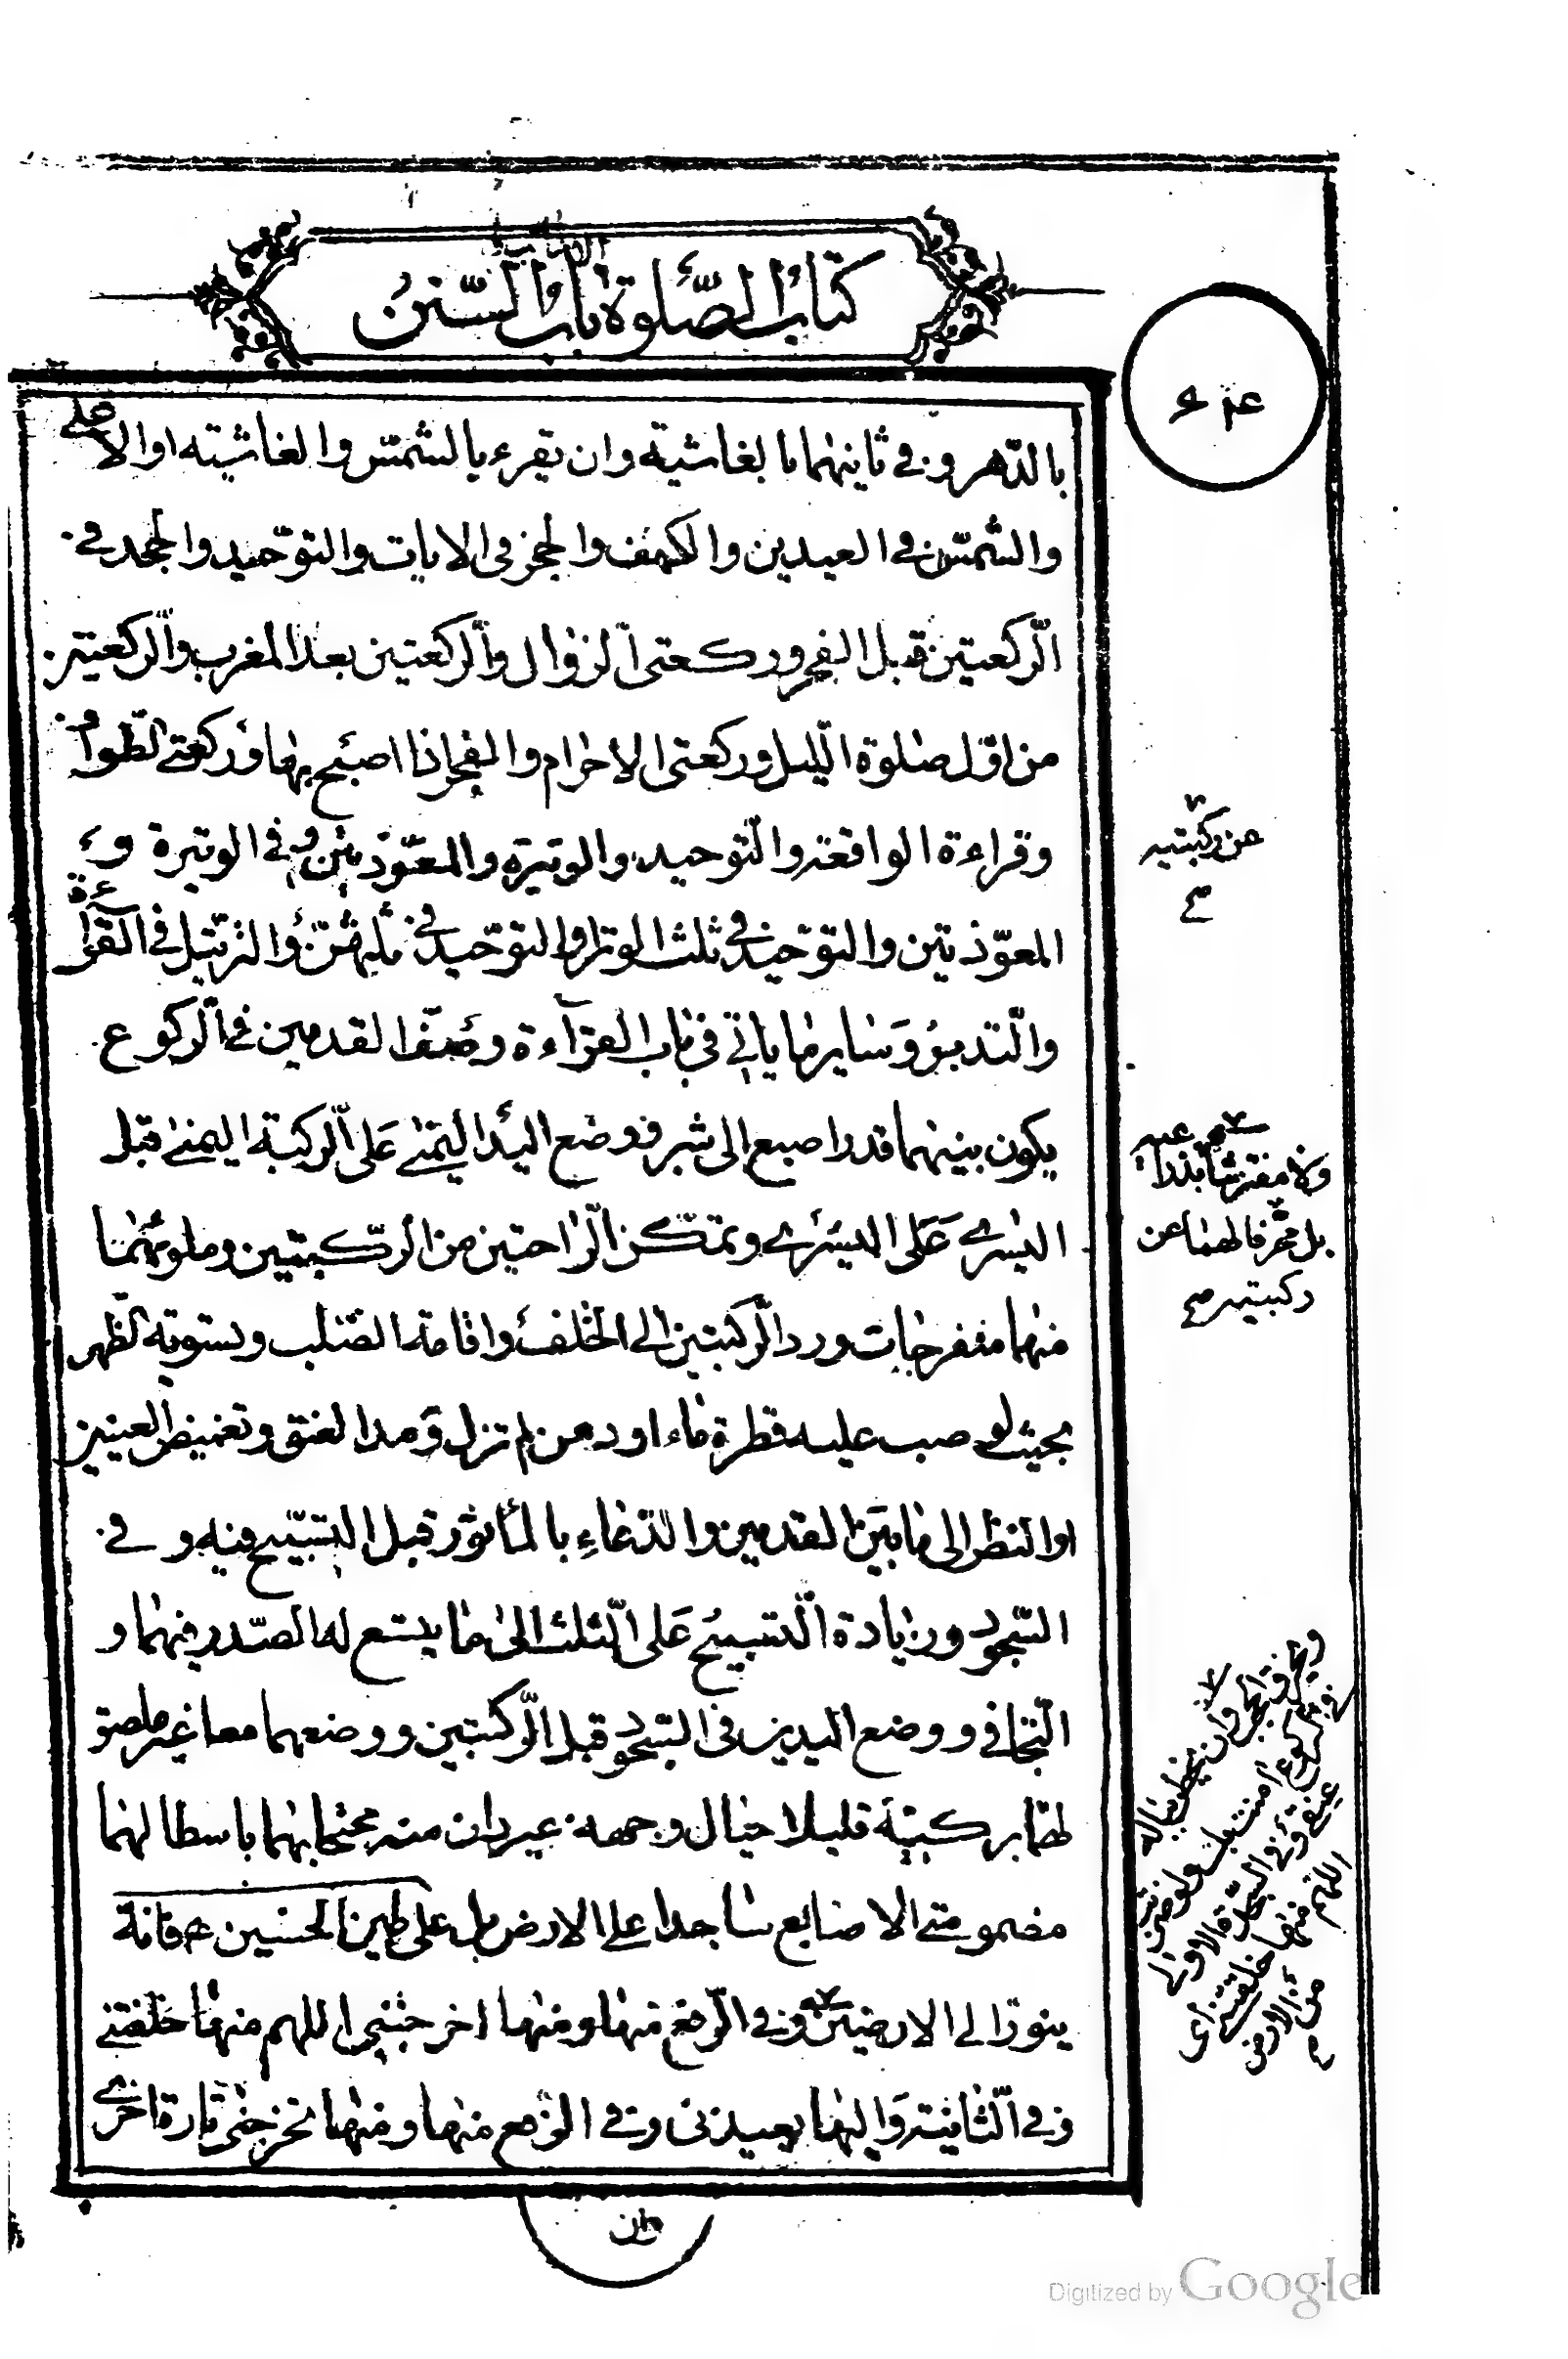 كتاب الصّلوة باب السّنن
بالدّهر و في ثانيهما بالغاشية وان يقرء بالشمس والغاشيته اوالاعلى
والشمس في العيدين والكهف والحجر في الايات والتوحيد والجحد في
الرّكعتين قبل الفجر وركعتى الزوال والرّكعتين بعد المغرب والرّكعتين
من اوّل صلوة الليل وركعتى الاحرام والفجر اذا اصبح بها وركعتي الطواف
وقراءة الواقعة والتوحيد والوتيرة والمعوّذتين في الوتيرة و
المعوّذتين والتوحيد في ثلث الوتر والتوحيد في ثلثهن والترتيل في القراءة
والتدبر وساير ما ياتي في باب القرآءة وصفّ القدمين في الرّكوع
يكون بينهما قدر اصبع الى شبر ووضع اليد اليمنى على الرّكبة اليمنى قبل
اليسرى على اليسرى وتمكن الرّاحتين من الرّكبتين وملوئهما
منهما منفرجات ورد الرّكبتين الى الخلف واقامة الصلب وتسوية الظهر
بحيث لو صب عليه قطرة ماء او دهن لم تزل ومد العنق وتغميض العينين
اوالنظر الى ما بين القدمين والدّعاء بالمأثور قبل التسبيح فيه و في
السّجود وزيادة التسبيح على الثلث الى ما يتسع له الصّدر فيهما و
التجافي ووضع اليدين في السّجود قبل الرّكبتين ووضعهما معا غير ملصق
لهما بركبتيه قليلا حيال وجهه غير ان منه مجنحا بهما باسطا لهما
مضمومتي الاصابع ساجدا على الارض بل على طين الحسين فانه
ينور الى الارضين و في الرّفع منها ومنها اخرجتني اللهم منها خلقتني
و في الثانية واليها تعيدنى و في الرفع منها ومنها تخرجني تارة اخرى
وان
عن ركبتيه
ولا مفترشا بذراعيه
بل محرفا لهما عن
ركبتيه